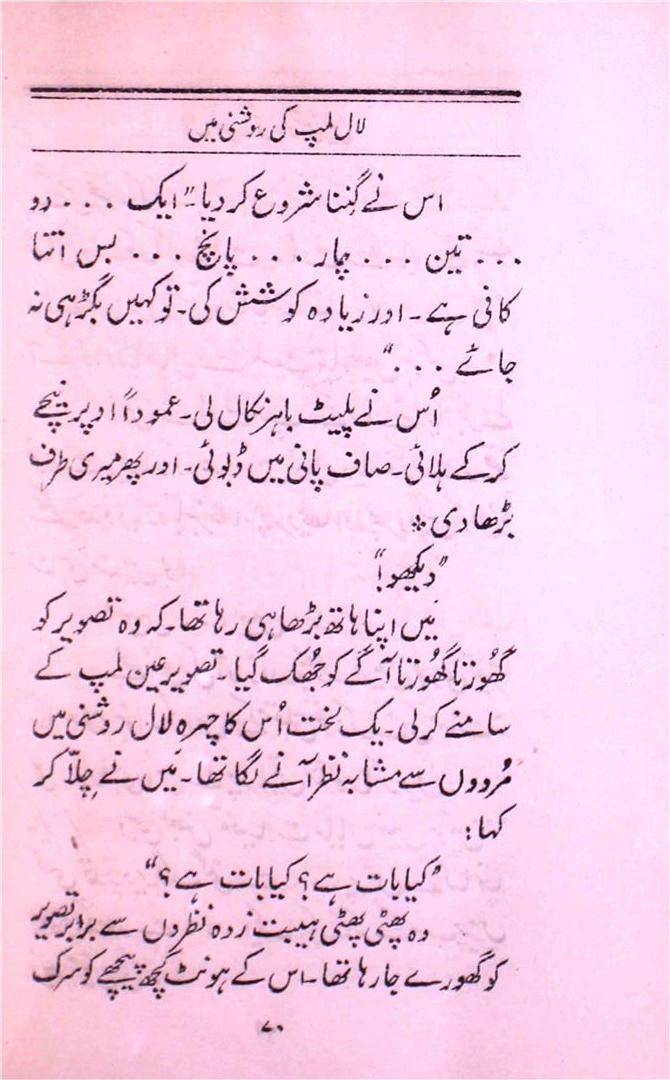 لال لمپ کی روشنی میں
اس نے گِننا شروع کر دیا۔ "ایک . . . دو
. . . تین . . . چار . . . پانچ . . . بس اتنا
کافی ہے۔ اور زیادہ کوشش کی۔ تو کہیں بگڑ ہی نہ
جائے . . ."
اُس نے پلیٹ باہر نکال لی۔ عموداً اوپر نیچے
کر کے ہلائی۔ صاف پانی میں ڈبوئی۔ اور پھر میری طرف
بڑھا دی *
"دیکھو!"
مَیں اپنا ہاتھ بڑھا ہی رہا تھا۔ کہ وہ تصویر کو
گھُورتا گھُورتا آگے کو جھُک گیا۔ تصویر عین لمپ کے
سامنے کر لی۔ یک لخت اُس کا چہرہ لال روشنی میں
مُردوں سے مشابہ نظر آنے لگا تھا۔ مَیں نے چِلّا کر
کہا:
"کیا بات ہے؟ کیا بات ہے؟"
وہ پھٹی پھٹی ہیبت زدہ نظروں سے برابر تصویر
کو گھورے جا رہا تھا۔ اس کے ہونٹ کچھ پیچھے کو سرک
۷۰